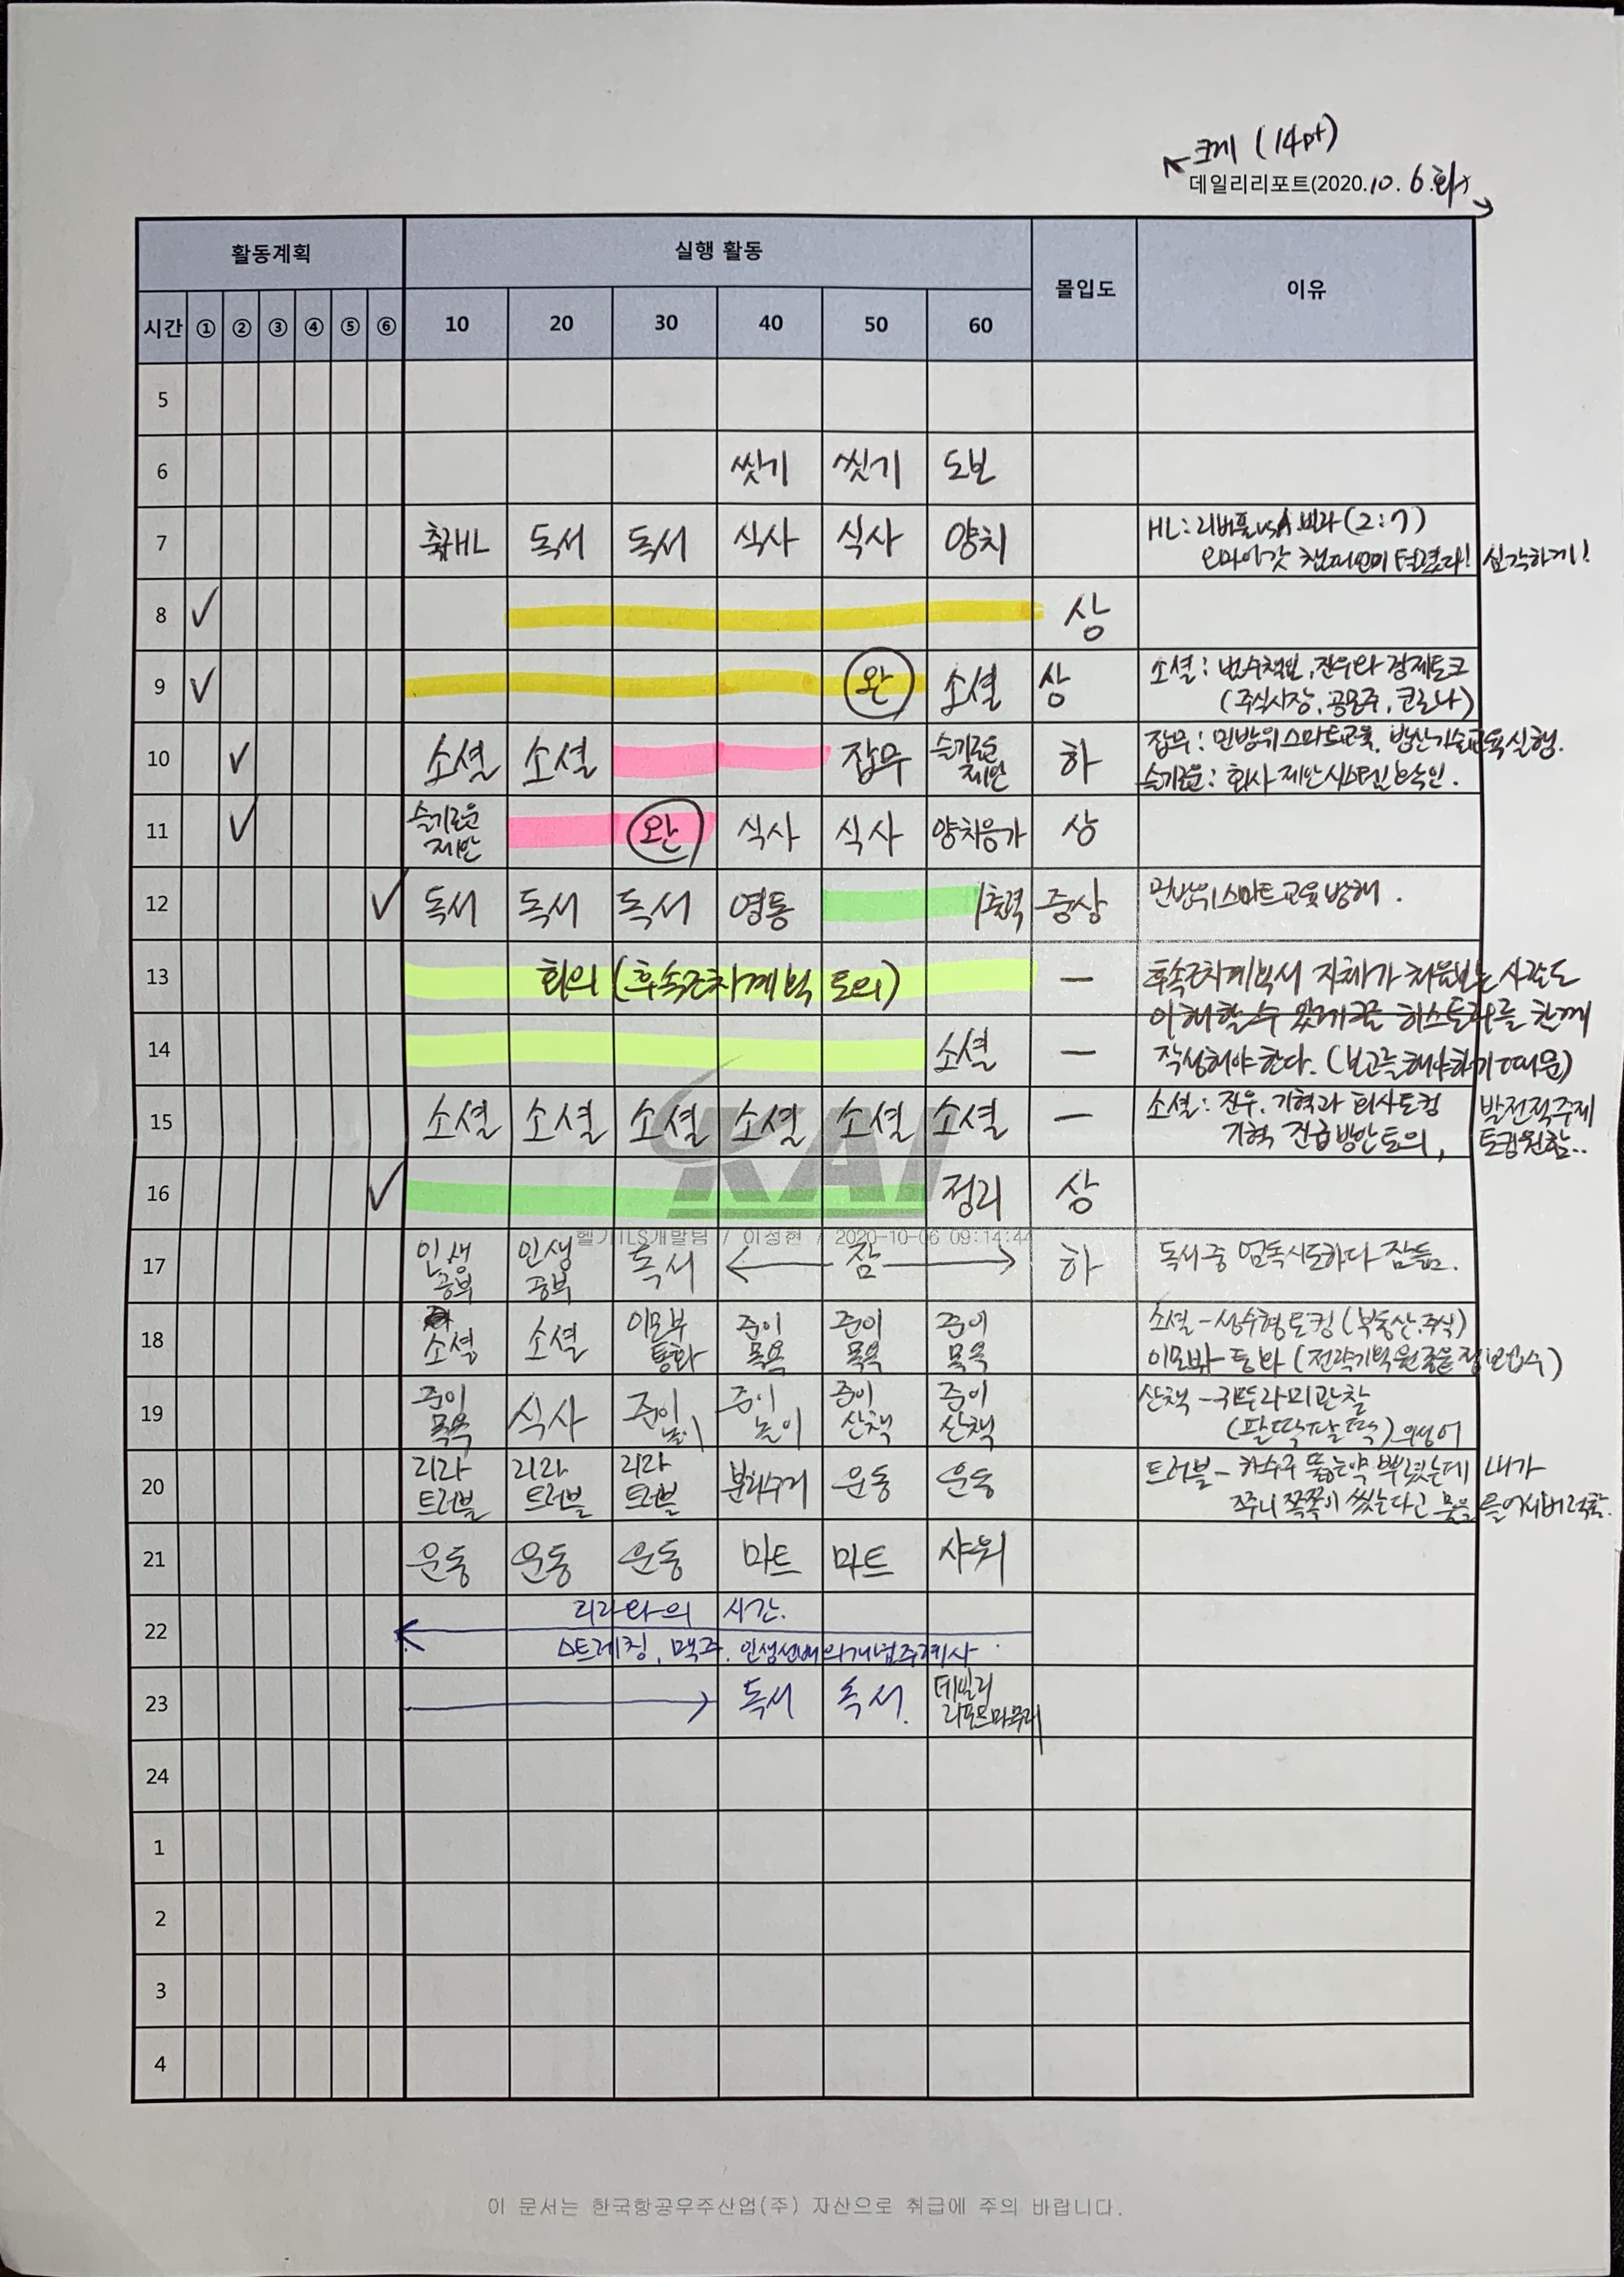 크게 (14pt)
데일리리포트(2020.10.6.화)
활동계획 실행 활동 몰입도 이유
시간 ① ② ③ ④ ⑤ ⑥ 10 20 30 40 50 60
5
6 씻기 씻기 도보
7 축구HL 독서 독서 식사 식사 양치 HL: 리버풀 vs A.빌라 (2:7)
오마이갓 챔피언이 털렸다! 심각하게!
8 ✓ 상
9 ✓ 완 소셜 상 소셜: 범수책임, 진우와 경제토크
(주식시장, 공모주, 코로나)
10 ✓ 소셜 소셜 잡무 슬기로운 제안 하 잡무: 민방위 스마트교육, 방산기술교육 실행.
슬기로운: 회사 제안시스템 확인.
11 ✓ 슬기로운 제안 완 식사 식사 양치응가 상
12 ✓ 독서 독서 독서 영통 /출력 중상 민방위 스마트교육 방해.
13 회의 (후속근차계획 토의) ー 후속근차계획서 자체가 처음보는 사람도
이해할 수 있게끔 히스토리를 함께
14 소셜 ー 작성해야 한다. (보고를 해야하기 때문)
15 소셜 소셜 소셜 소셜 소셜 소셜 ー 소셜: 진우, 기혁과 회사토킹 발전적주제
기혁 진급방안 토의, 토킹원함..
KAI
16 ✓ 정리 상
헬기ILS개발팀 / 이성현 / 2020-10-06 09:14:44
17 인생 공부 인생 공부 독서 잠 하 독서중 엄독시도하다 잠듦.
18 소셜 소셜 이모부 통화 준이 목욕 준이 목욕 준이 목욕 소셜-성수형 토킹 (부동산, 주식)
이모부-통화 (전략기획원 정보접수)
19 준이 목욕 식사 준이 놀이 준이 놀이 준이 산책 준이 산책 산책-귀뚜라미 관찰
(팔딱팔딱) 의성어
20 리라 트러블 리라 트러블 리라 트러블 분리수거 운동 운동 트러블- 하수구 뚫는약 뿌렸는데 내가
쭈니 쪽쪽이 씻는다고 물을 틀어서버려함.
21 운동 운동 운동 마트 마트 샤워
22 리라와의 시간.
스트레칭, 맥주, 인생선배의 개념주례사
23 독서 독서. 데일리 리포트마무리
24
1
2
3
4
이 문서는 한국항공우주산업(주) 자산으로 취급에 주의 바랍니다.